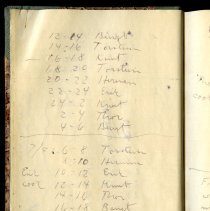 12-14 Bengt
14-16 Torsten
16-18 Knut
18 20 Torsten
20-22 Herman
22-24 Erik
24-2 Knut
2-4 Thor
4-6 Bengt
7/8 6-8 Torsten
8-10 Herman
10-12 Erik
12-14 Knut
14-16 Thor
16-18 Bengt